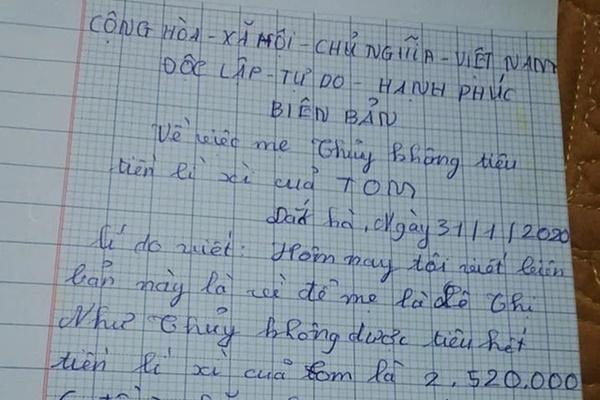 CỘNG HÒA - XÃ HỘI - CHỦ NGHĨA - VIỆT NAM
ĐỘC LẬP - TỰ DO - HẠNH PHÚC
BIÊN BẢN
Về việc mẹ Thủy không tiêu
tiền lì xì của TOM
Đăk hà, Ngày 31/1/2020
Lí do viết: Hôm nay tôi viết biên
bản này là vì để mẹ là Lê Thị
Như Thủy không được tiêu hết
tiền lì xì của Tom là 2.520.000